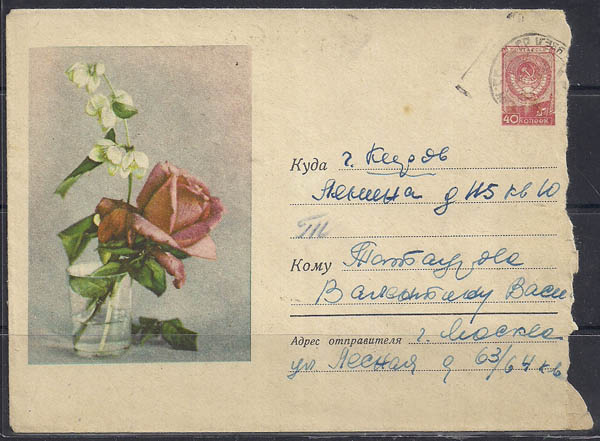 40 КОПЕЕК
Куда г. Киров
Ленина д 115 кв 10
Кому
Валентину Васи
Адрес отправителя г. Москва
ул Лесная д 63/64 кв